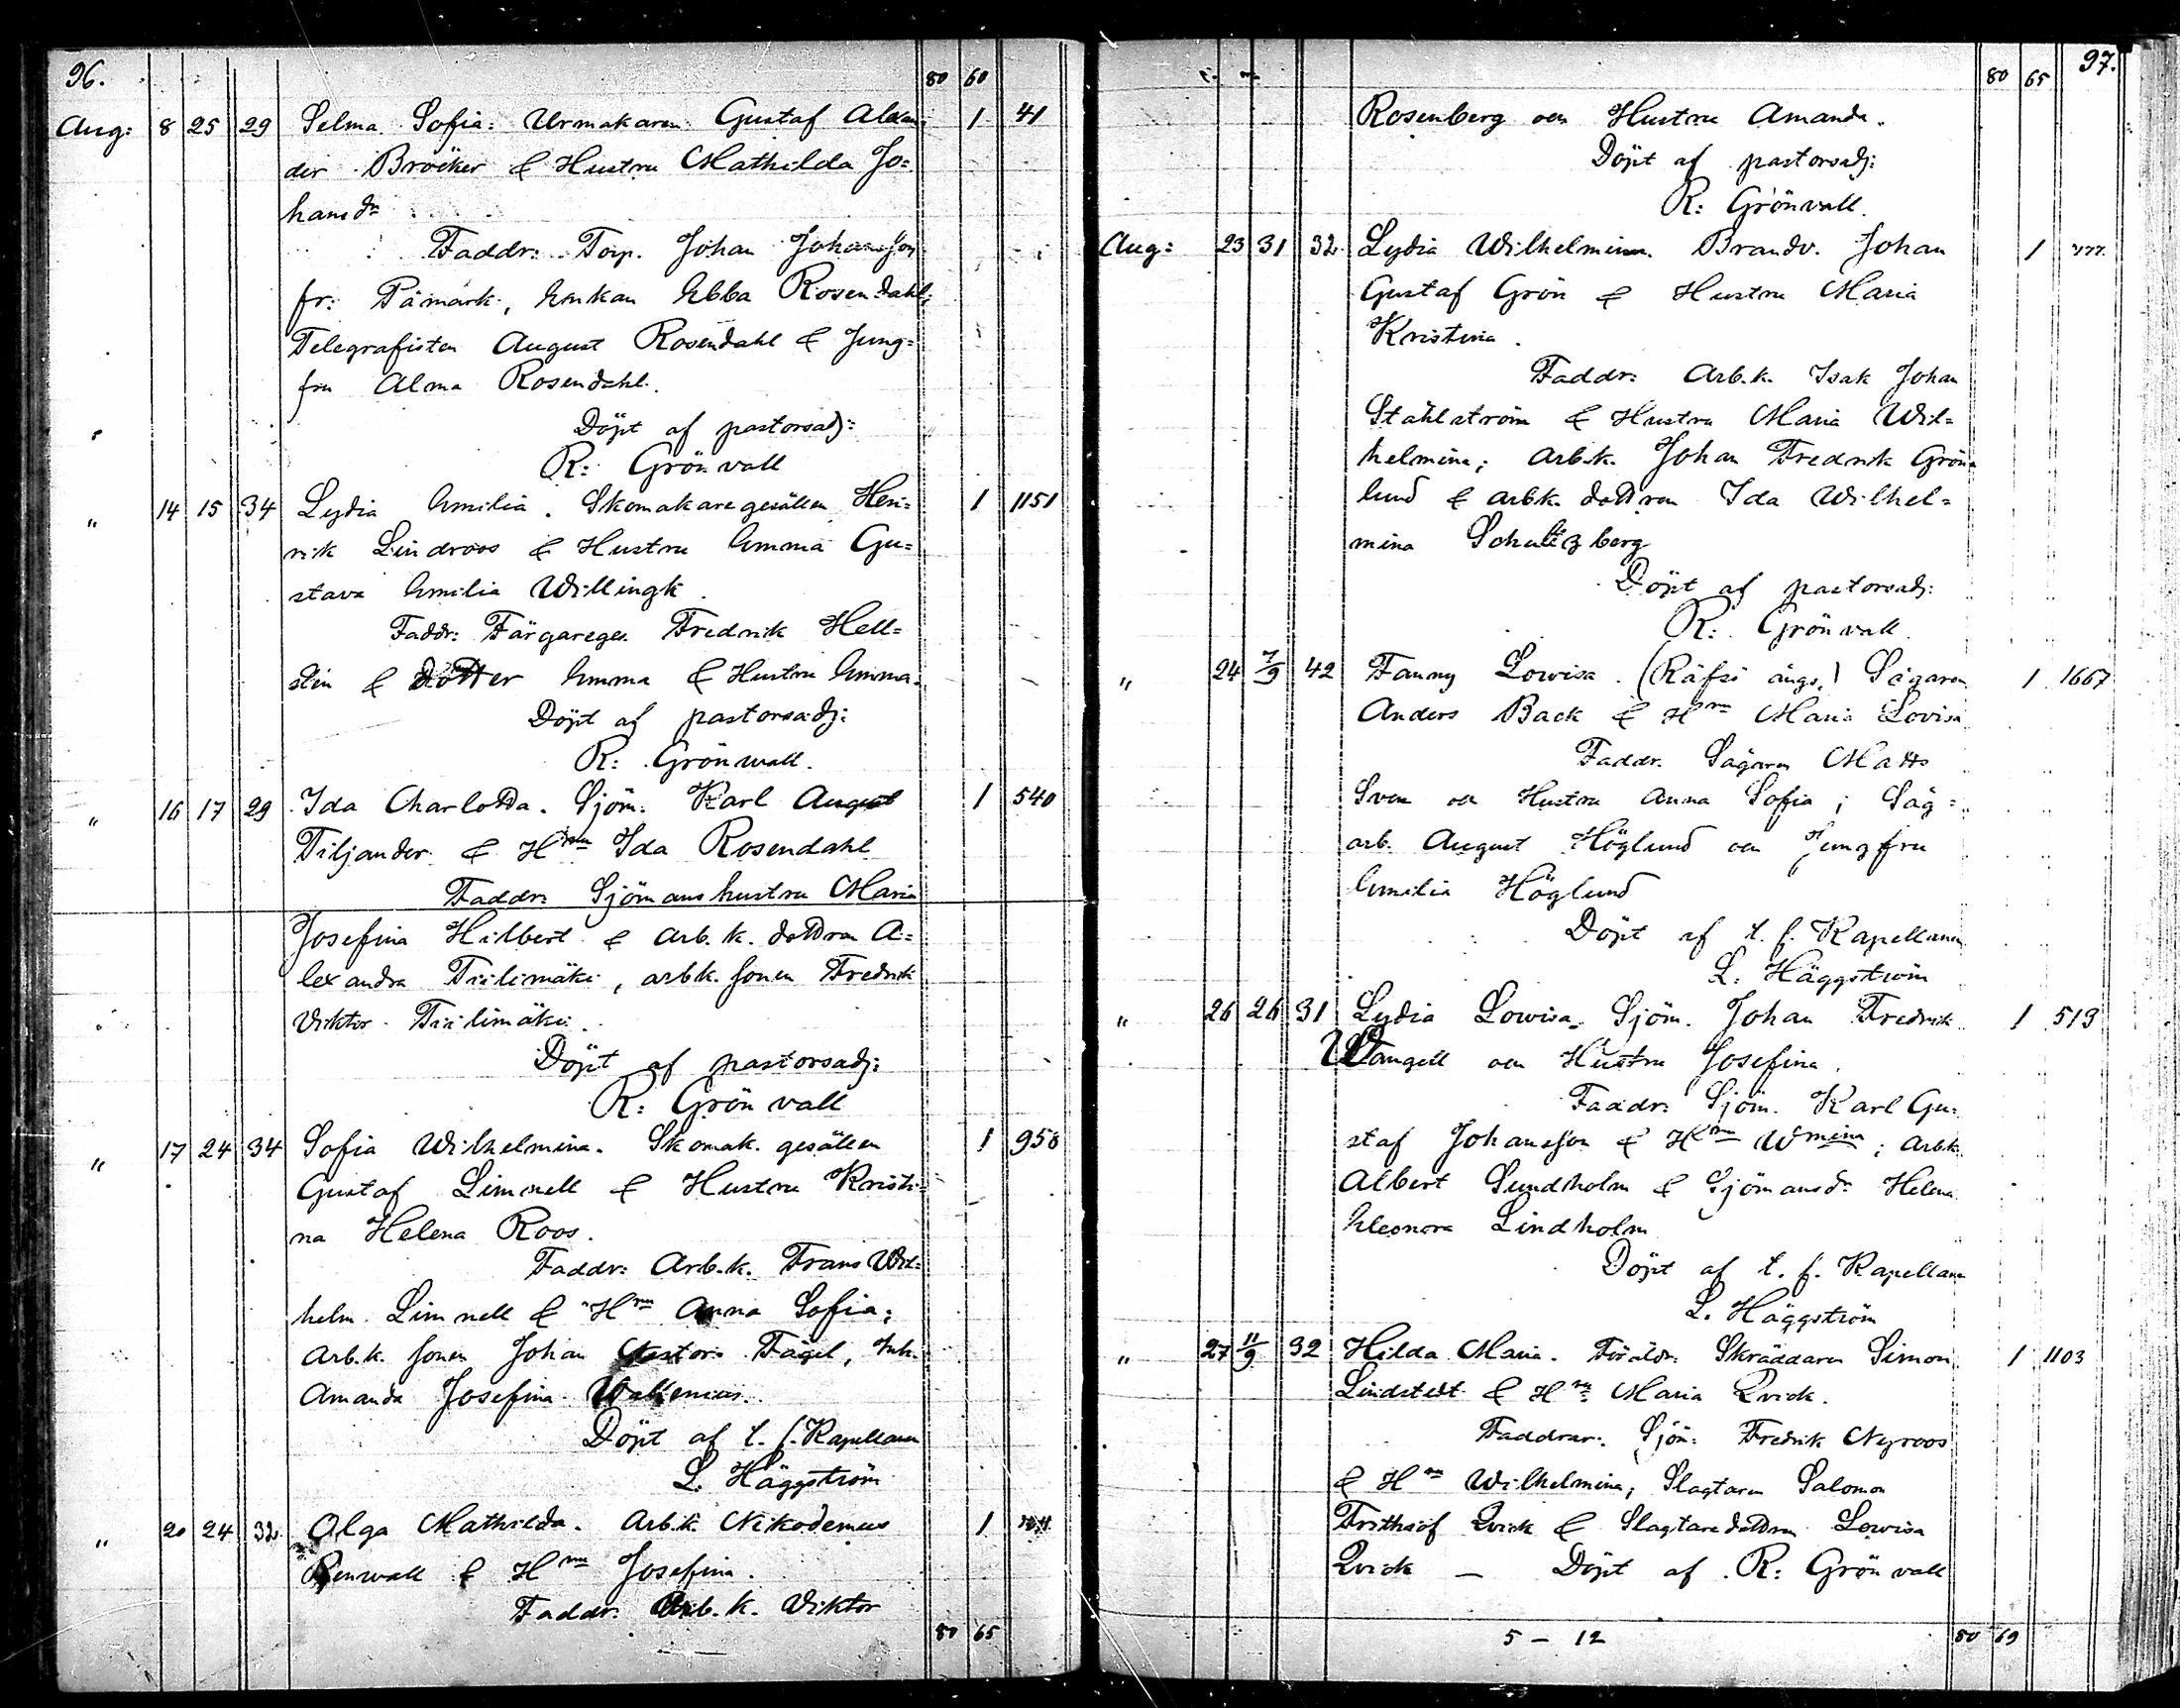 96.
80 60
Aug: 8 25 29 Selma Sofia: Urmakaren Gustaf Alexan-
der Bröcker & Hustru Mathilda Jo=
hansdr
Faddr: Torp. Johan Johansson
fr: Påmark, Enkan Ebba Rosendahl;
Telegrafisten August Rosendahl & Jung=
fru Alma Rosendahl.
Döpt af pastorsadj:
R: Grönvall
1 41
" 14 15 34 Lydia Emilia. Skomakaregesällen Hen=
rik Lindroos & Hustru Emma Gu=
stava Emilia Willingk.
Faddr: Färgareges. Fredrik Hell=
stén & Dotter Emma & Hustru Emma.
Döpt af pastorsadj:
R: Grönwall.
1 1151
" 16 17 29 Ida Charlotta. Sjöm. Karl August
Tiljander & Hru Ida Rosendahl
Faddr: Sjömans hustru Maria
Josefina Hilbert & Arb.k. dottren A=
lexandra Tiilimäki, arbk. sonen Fredrik
Viktor Tiilimäki.
Döpt af pastorsadj:
R: Grönvall
1 540
" 17 24 34 Sofia Wilhelmina. Skomak. gesällen
Gustaf Limnell & Hustru Kristi=
na Helena Roos.
Faddr: Arb.k. Frans Wil=
helm Limnell & Hru Anna Sofia;
Arb.k. sonen Johan Fågel,
Amanda Josefina Wallenius.
Döpt af t. f. Kapellanen
L. Häggström
1 950
" 20 24 32 Olga Mathilda. Arb.k. Nikodemus
Renwall & Hru Josefina.
Faddr: Arb.k. Viktor
1
80 65
97.
80 65
Rosenberg och Hustru Amanda.
Döpt af pastorsadj:
R: Grönvall.
Aug: 23 31 32 Lydia Wilhelmina. Brandv. Johan
Gustaf Grön & Hustru Maria
Kristina.
Faddr: Arb.k. Isak Johan
Ståhlström & Hustru Maria Wil=
helmina; Arb.k. Johan Fredrik Grön
lund & arbk. dottren Ida Wilhel=
mina Schultzberg
Döpt af pastorsadj:
R: Grönvall
1
" 24 7/9 42 Fanny Lowisa. (Räfsö ångs.) Sågaren
Anders Back & Hru Maria Lovisa
Faddr. Sågaren Matts
Sven och Hustru Anna Sofia; Såg=
arb. August Höglund och Jungfru
Emilia Höglund
Döpt af t. f. Kapellanen
L. Häggström
1 1667
" 26 26 31 Lydia Lowisa. Sjöm. Johan Fredrik
Wangell och Hustru Josefina.
Faddr: Sjöm. Karl Gu=
staf Johansson & Hru Wmina; Arbk.
Albert Sundholm & Sjömansdr Helena
Eleonora Lindholm
Döpt af t. f. Kapellanen
L. Häggström
1 513
" 27 11/9 32 Hilda Maria. Föräldr: Skräddaren Simon
Lindstedt & Hru Maria Qvick.
Faddrar: Sjöm: Fredrik Nyroos
& Hru Wilhelmina; Slagtaren Salomon
Frithiof Qvick & Slagtaredottren Lowisa
Qvick — Döpt af R: Grönvall
1 1103
5 – 12
80 69